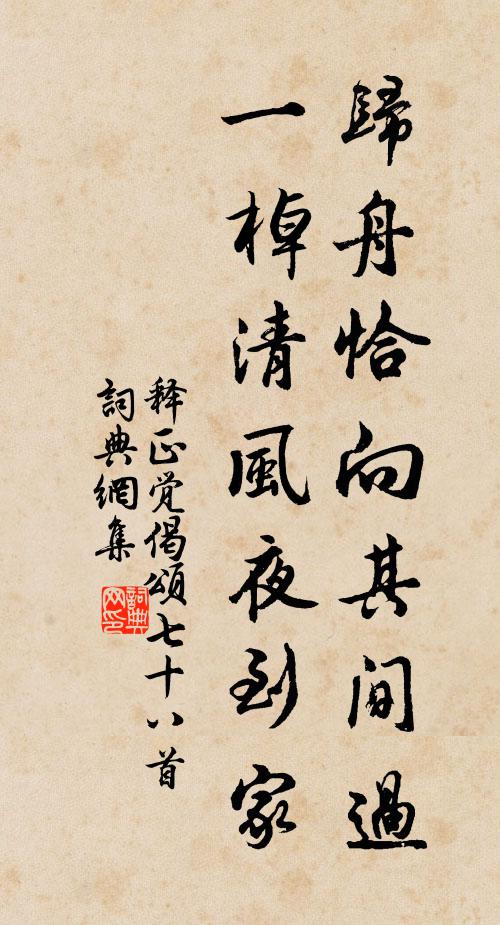 歸舟恰向其間過
一棹清風夜到家
释正觉偈頌七十八首
詞典網集
詞典网印